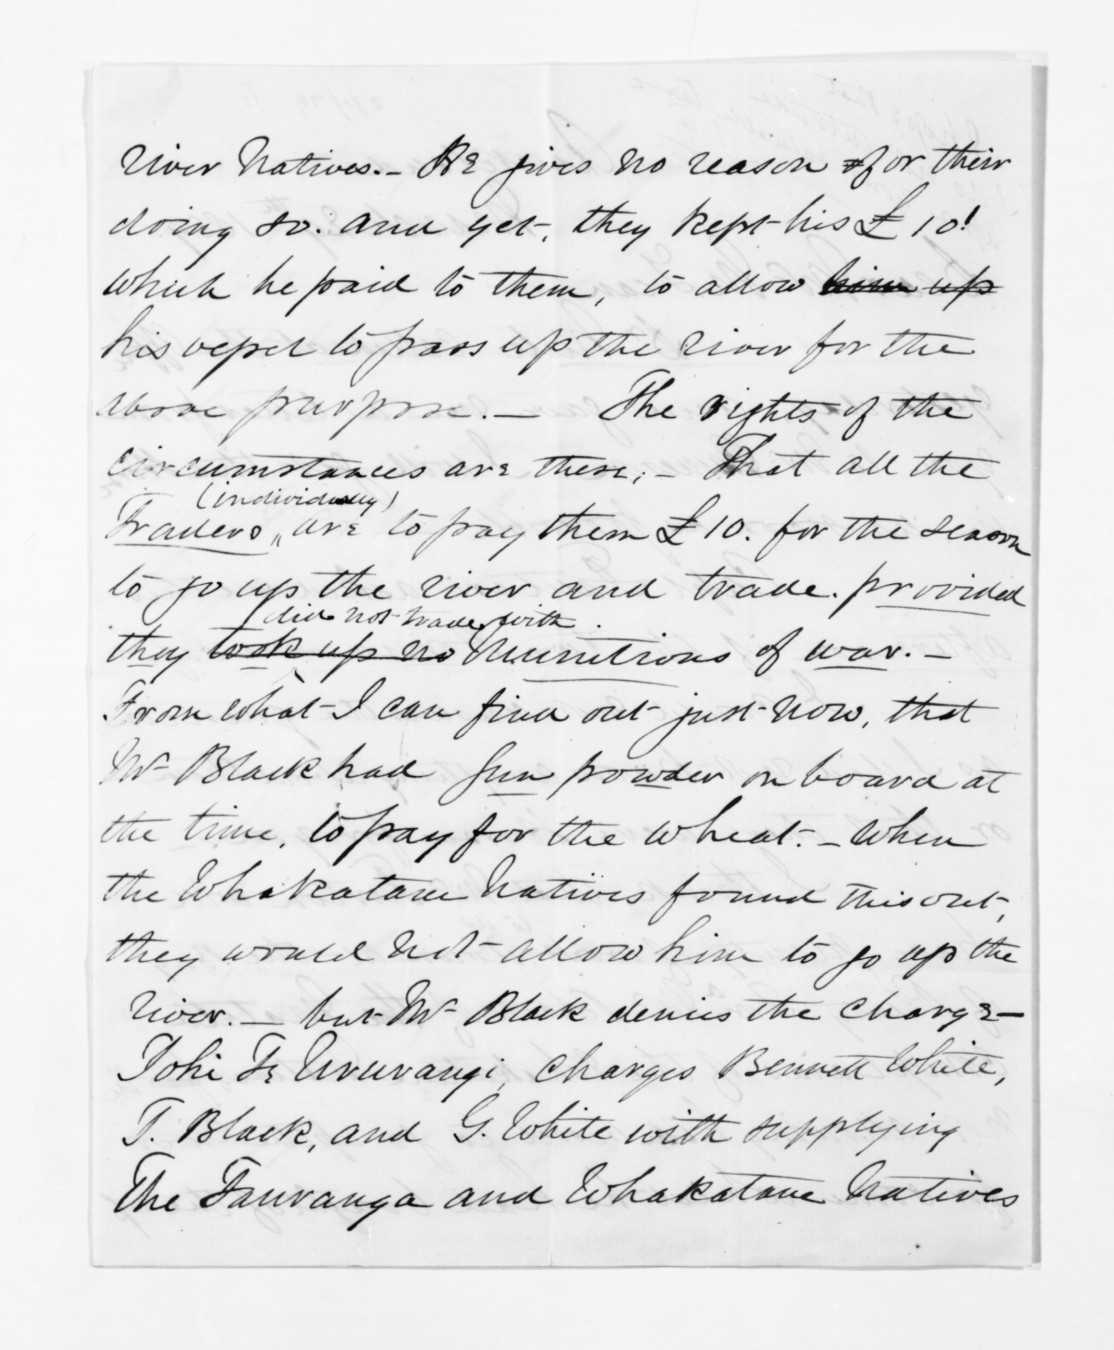 river Natives. – He gives no reason for their
doing so. and yet, they kept his £10!
which he paid to them, to allow him up
his vessel to pass up the river for the
above purpose. – The rights of the
circumstances are these; – That all the
(individually)
Traders, are to pay them £10. for the season
to go up the river and trade. provided
did not trade with.
they took up no munitions of war. –
From what I can find out just now, that
Mr Black had gun powder on board at
the time, to pay for the wheat. – When
the Whakatane Natives found this out,
they would not allow him to go up the
river. – but Mr Black denies the charge –
Tohi Te Ururangi, charges Bennett White,
T. Black, and G. White with supplying
The Tauranga and Whakatane Natives